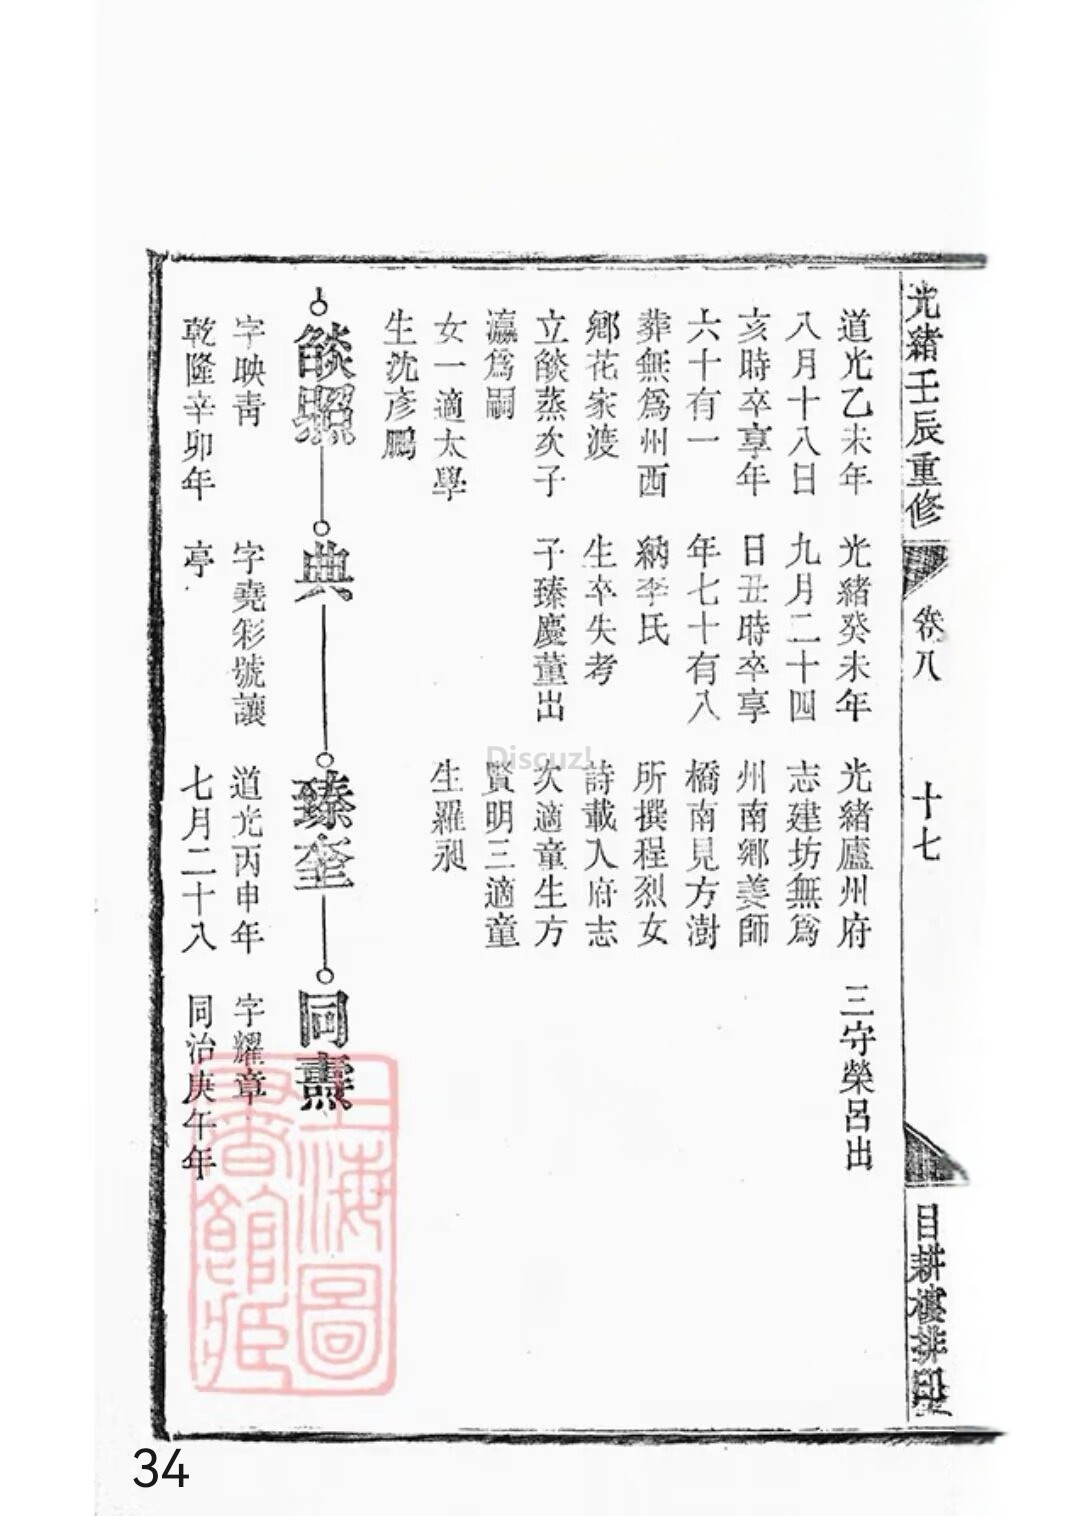 光緒壬辰重修
卷八
十七
目耕樓排印
道光乙未年
八月十八日
亥時卒享年
六十有一
葬無爲州西
鄉花家渡
立燄蒸次子
瀛爲嗣
女一適太學
生沈彥鵬
光緒癸未年
九月二十四
日丑時卒享
年七十有八
納李氏
生卒失考
子臻慶董出
光緒廬州府
志建坊無爲
州南鄉姜師
橋南見方澍
所撰程烈女
詩載入府志
次適童生方
賢明三適童
生羅昶
三守榮呂出
燄照
典
臻奎
同燾
字映青
乾隆辛卯年
字堯彩號讓
亭
道光丙申年
七月二十八
字耀章
同治庚午年
上海圖
書館藏
Discuz!
34